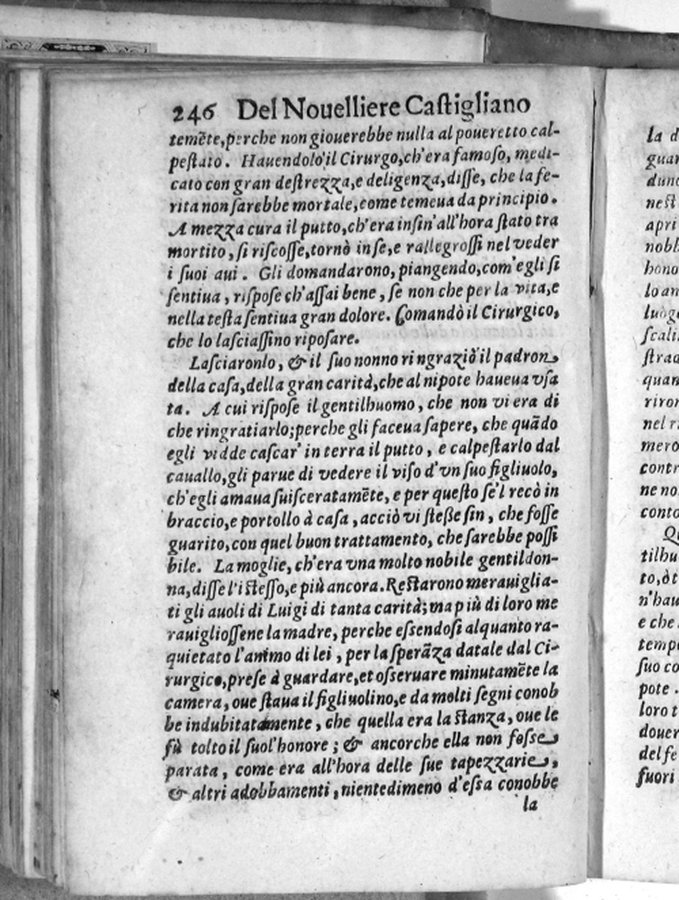 246 Del Nouelliere Castigliano
temẽte, perche non giouerebbe nulla al poueretto cal-
pestato. Hauendolo il Cirurgo, ch'era famoso, medi-
cato con gran destrezza, e deligenza, disse, che la fe-
rita non sarebbe mortale, come temeua da principio.
A mezza cura il putto, ch'era insin'all'hora stato tra
mortito, si riscosse, tornò in se, e rallegrossi nel veder
i suoi aui. Gli domandarono, piangendo, com'egli si
sentiua, rispose ch'assai bene, se non che per la vita, e
nella testa sentiua gran dolore. Comandò il Cirurgico,
che lo lasciassino riposare.
Lasciaronlo, & il suo nonno ringraziò il padron
della casa, della gran carità, che al nipote haueua vsa
ta. A cui rispose il gentilhuomo, che non vi era di
che ringratiarlo; perche gli faceua sapere, che quãdo
egli vidde cascar' in terra il putto, e calpestarlo dal
cauallo, gli parue di vedere il viso d'vn suo figliuolo,
ch'egli amaua suisceratamẽte, e per questo se'l recò in
braccio, e portollo à casa, acciò vi stesse sin, che fosse
guarito, con quel buon trattamento, che sarebbe possi
bile. La moglie, ch'era vna molto nobile gentildon-
na, disse l'istesso, e più ancora. Restarono merauiglia-
ti gli auoli di Luigi di tanta carità; ma più di loro me
rauigliossene la madre, perche essendosi alquanto ra-
quietato l'animo di lei, per la sperãza datale dal Ci-
rurgico, prese à guardare, et osseruare minutamẽte la
camera, oue staua il figliuolino, e da molti segni conob
be indubitatamente, che quella era la stanza, oue le
fù tolto il suo l'honore; & ancorche ella non fosse
parata, come era all'hora delle sue tapezzarie,
& altri adobbamenti, nientedimeno d'essa conobbe
la
la d
guar
dunq
nest
apri
nobl
hono
lo an
luogo
scali
strad
quan
riror
nel r
mero
contr
ne no
conto
tilhu
to, ò t
n'hau
e che
tempo
suo co
pote.
loro t
douer
del fe
fuori